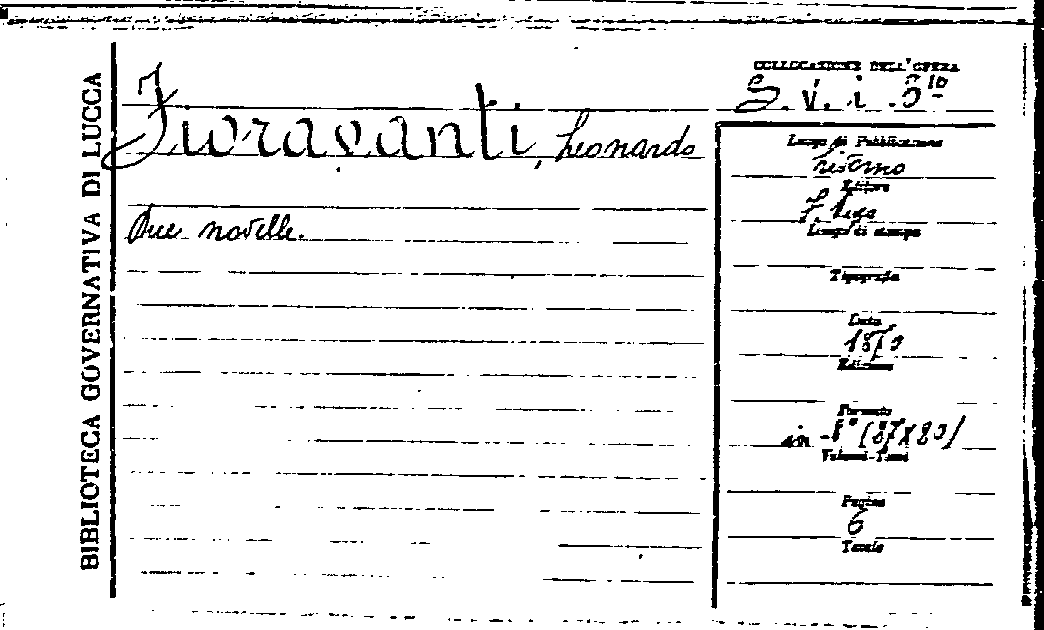 BIBLIOTECA GOVERNATIVA DI LUCCA
Fioravanti, Leonardo
Due novelle.
COLLOCAZIONE DELL'OPERA
S. v. i
Luogo di Pubblicazione
Livorno
Editore
Luogo di stampa
Tipografia
Data
Edizione
Formato
in
Volumi-Tomi
Pagine
6
Tavole